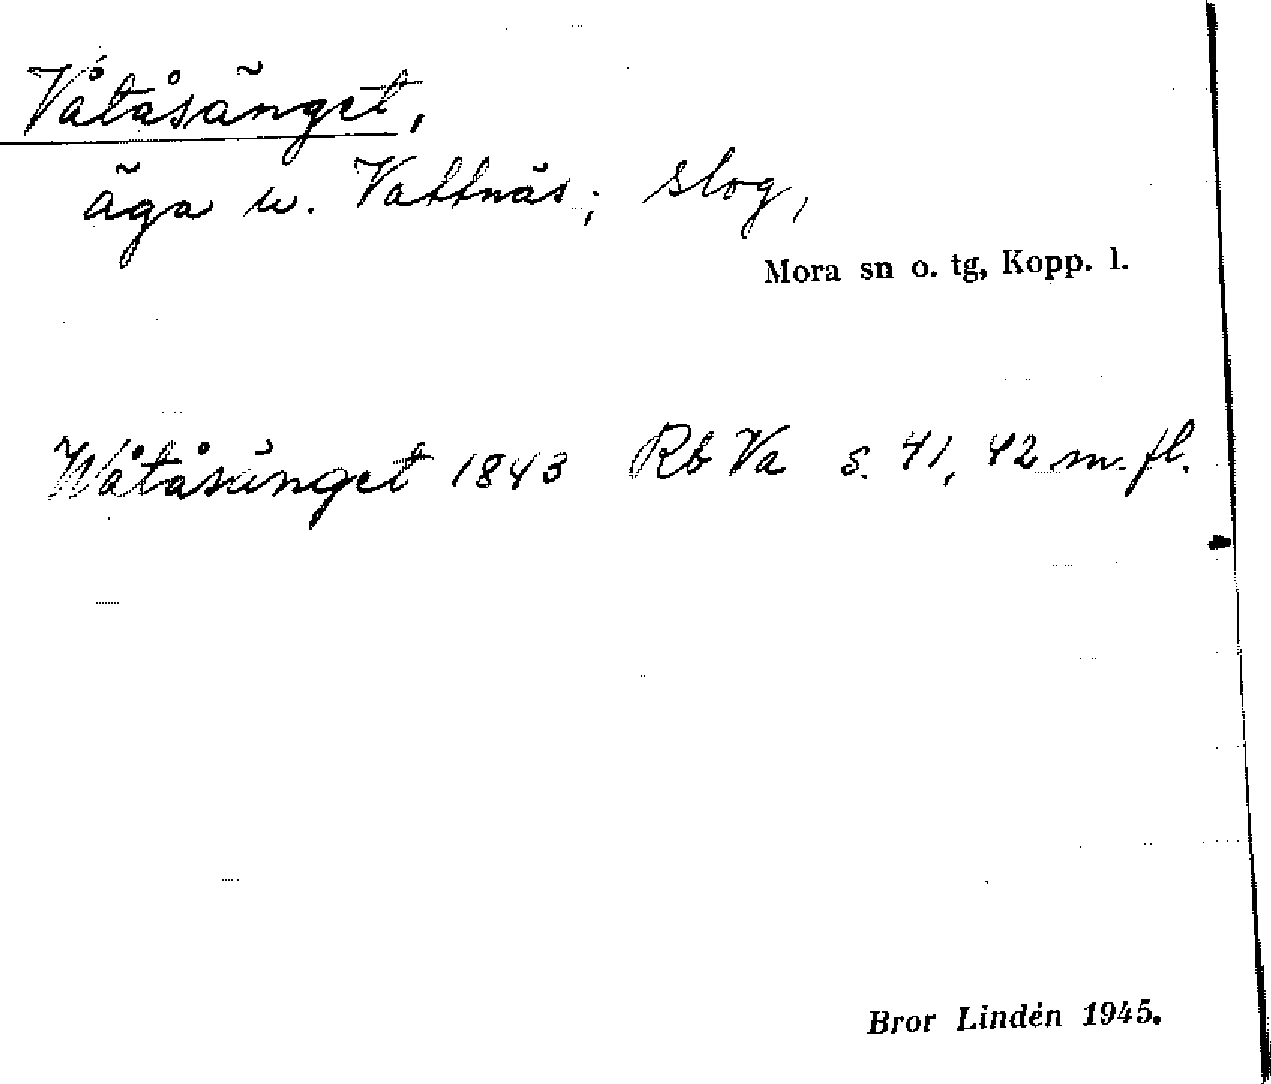 Våtåsänget,
äga u. Vattnäs; slog,
Mora sn o. tg, Kopp. l.
Wåtåsänget 1843 Rb Va s. 41, 42 m. fl.
Bror Lindén 1945.